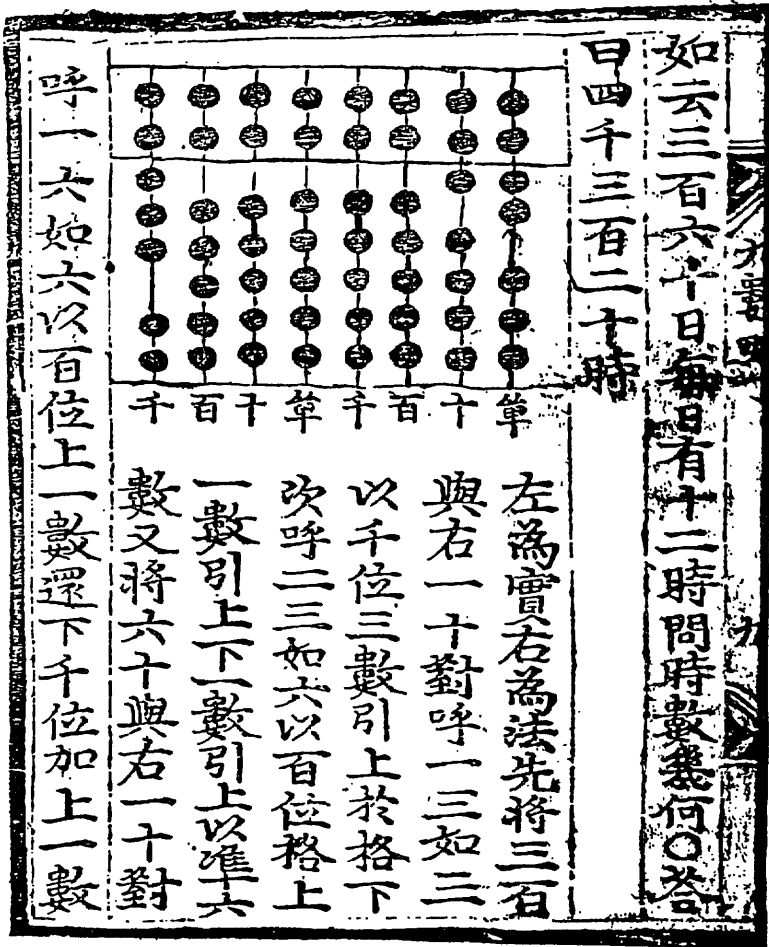 如云三百六十日每日有十二時問時數幾何〇荅
曰四千三百二十時
單
十
百
千
單
十
百
千
左為實右為法先將三百
與右一十對呼一三如三
以千位三數引上於格下
次呼二三如六以百位格上
一數引上下一數引上以准十六
數又將六十與右一十對
呼一六如六以百位上一數還下千位加上一數